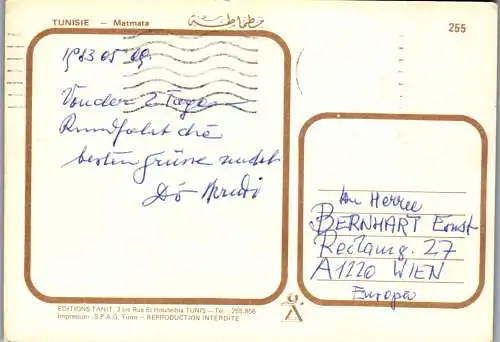 TUNISIE — Matmata مطماطة
255
1983 05 09
Von der 2 Tage
Rundfahrt die
besten Grüsse sendet
An Herrn
BERNHART Ernst
27
A1220 WIEN
Europa
EDITIONS TANIT, 3 bis Rue El Houteilbia TUNIS - Tél. : 255.856
Impression : S.P.A.G. Tunis - REPRODUCTION INTERDITE